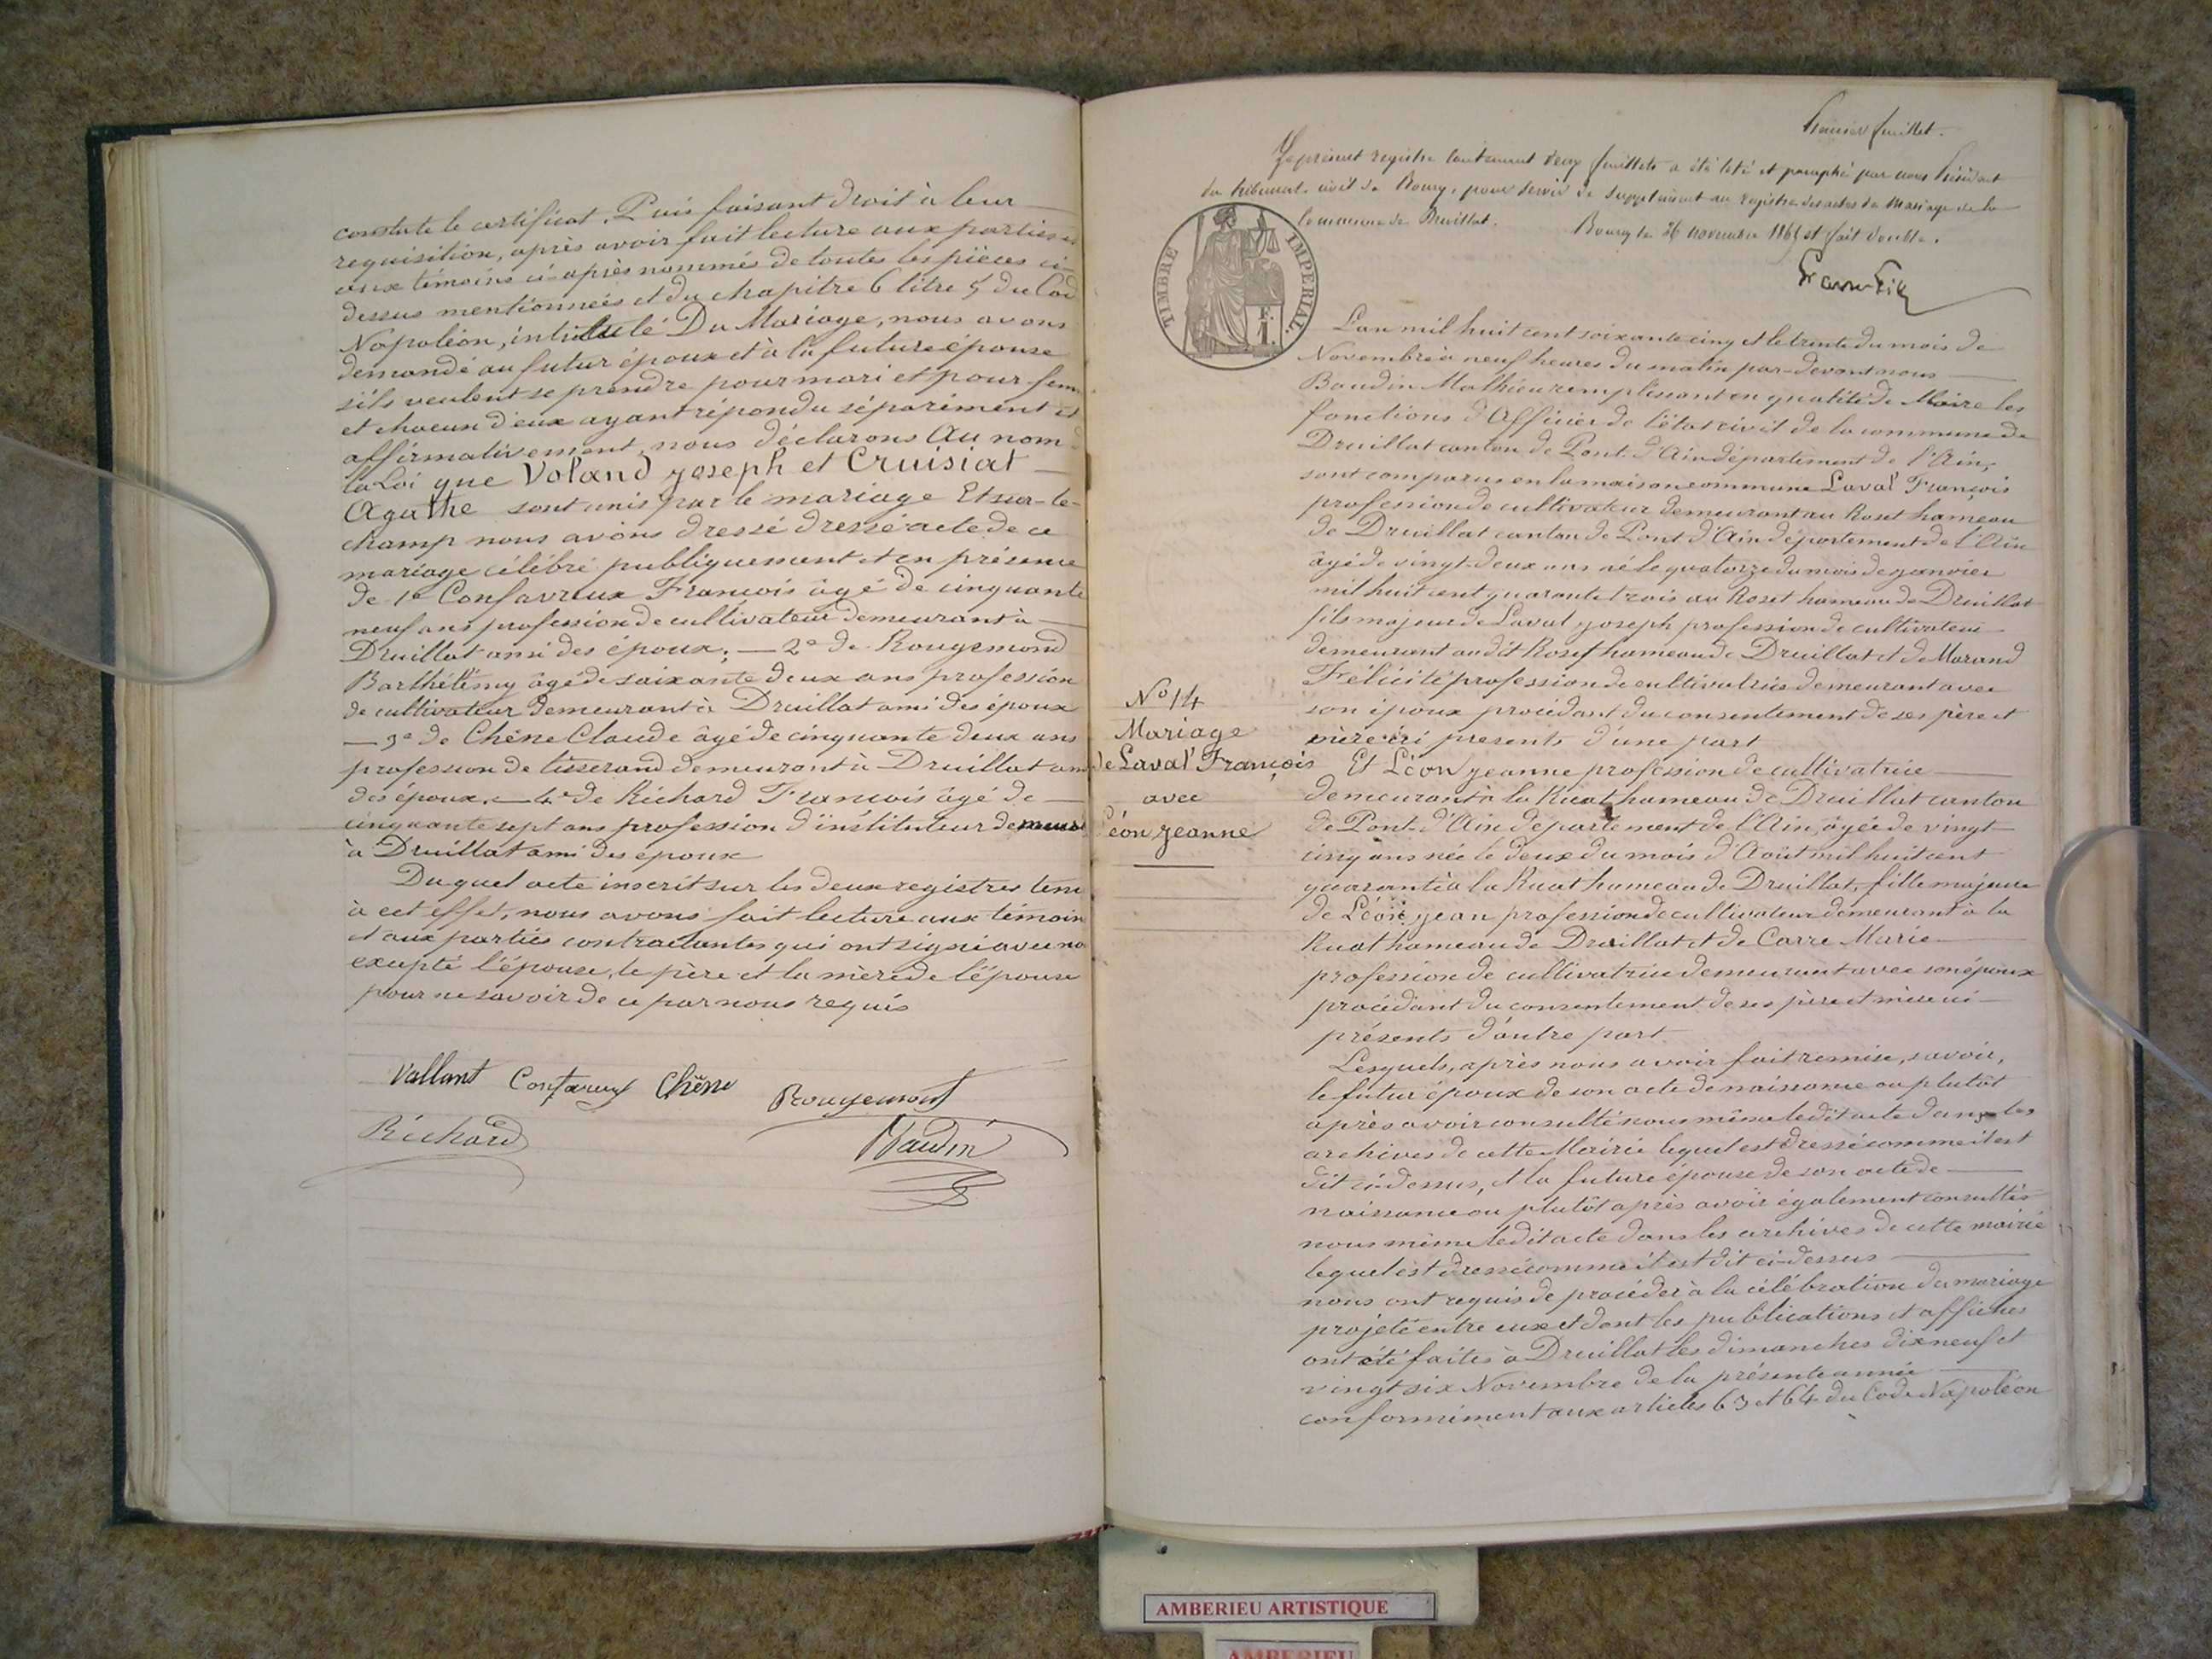 constate le certificat. Puis faisant droit à leur
requisition, après avoir fait lecture aux parties et
aux témoins ci-après nommés de toutes les pièces ci-
dessus mentionnées et du chapitre 6 titre 5 du Cod
Napoléon, intitulé Du Mariage, nous avons
demandé au futur époux et à la future épouse
s'ils veulent se prendre pour mari et pour fem
et chacun d'eux ayant répondu séparément et
affirmativement, nous déclarons Au nom d
la Loi que Voland Joseph et Cruisiat
Agathe sont unis par le mariage Et sur-le-
champ nous avons dressé dressé acte de ce
mariage célébré publiquement et en présence
de 1o Confavreux François âgé de cinquante
neuf ans profession de cultivateur demeurant à
Druillat ami des époux; — 2o de Rougemond
Barthélemy âgé de soixante deux ans profession
de cultivateur demeurant à Druillat ami des époux
— 3o de Chêne Claude âgé de cinquante deux ans
profession de tisserand demeurant à Druillat am
des époux. — 4o de Richard François âgé de
cinquante sept ans profession d'instituteur demeura
à Druillat ami des époux
Du quel acte inscrit sur les deux registres tenu
à cet effet, nous avons fait lecture aux témoin
et aux parties contractantes qui ont signé avec no
excepté l'épouse, le père et la mère de l'épouse
pour ne savoir de ce par nous requis
Vallant Confavreux Chêne Rougemont
Richard Baudin
Premier feuillet.
Le présent registre contenant deux feuillets a été coté et paraphé par nous Président
du tribunal civil de Bourg, pour servir de supplément au registre des actes de Mariage de la
commune de Druillat. Bourg le 26 novembre 1865 et fait double.
TIMBRE IMPERIAL.
F.
1
L'an mil huit cent soixante cinq et le trente du mois de
Novembre à neuf heures du matin par-devant nous
Baudin Mathieu remplissant en qualité de Maire les
fonctions d'Officier de l'état civil de la commune de
Druillat canton de Pont-d'Ain département de l'Ain,
sont comparus en la maison commune Laval François
profession de cultivateur demeurant au Roset hameau
de Druillat canton de Pont d'Ain département de l'Ain
âgé de vingt-deux ans né le quatorze du mois de janvier
mil huit cent quarante trois au Roset hameau de Druillat
fils majeur de Laval Joseph profession de cultivateur
demeurant audit Roset hameau de Druillat et de Marand
Félicité profession de cultivatrice demeurant avec
son époux procédant du consentement de ses père et
mère ici presents d'une part
No 14
Mariage
de Laval François
avec
Léon Jeanne
Et Léon Jeanne profession de cultivatrice
demeurant à la Ruat hameau de Druillat canton
de Pont-d'Ain département de l'Ain, âgée de vingt
cinq ans née le deux du mois d'Août mil huit cent
quarante à la Ruat hameau de Druillat, fille majeure
de Léon Jean profession de cultivateur demeurant à la
Ruat hameau de Druillat et de Carre Marie
profession de cultivatrice demeurant avec son époux
procédant du consentement de ses père et mère ici
présents d'autre part
Lesquels, après nous avoir fait remise, savoir,
le futur époux de son acte de naissance ou plutôt
après avoir consulté nous même ledit acte dans les
archives de cette Mairie lequel est dressé comme il est
dit ci-dessus, et la future épouse de son acte de
naissance ou plutôt après avoir également consulté
nous même ledit acte dans les archives de cette mairie
lequel est dressé comme il est dit ci-dessus
nous ont requis de procéder à la célébration du mariage
projeté entre eux et dont les publications et affiches
ont été faites à Druillat les dimanches dix neuf et
vingt six Novembre de la présente année
conformément aux articles 63 et 64 du Code Napoléon
AMBERIEU ARTISTIQUE
AMBERIEU